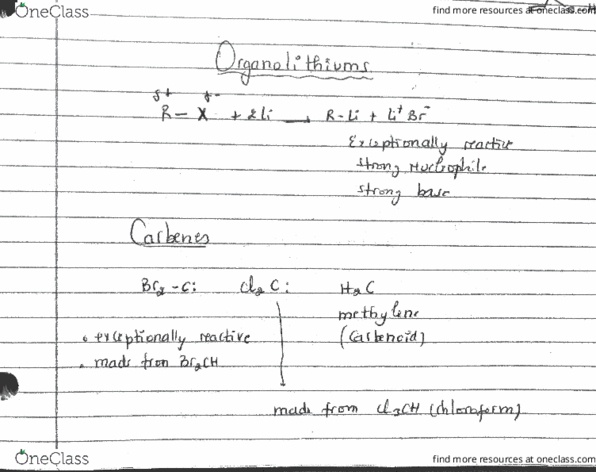 OneClass
find more resources at oneclass.com
Organolithiums
δ+ δ-
R - X + 2Li → R-Li + Li+ Br-
Exceptionally reactive
strong Nucleophile
strong base
Carbenes
Br2 -C: Cl2 C: H2C
• exceptionally reactive
methylene
(Carbenoid)
• made from Br3CH
made from Cl3CH (chloroform)
OneClass
find more resources at oneclass.com